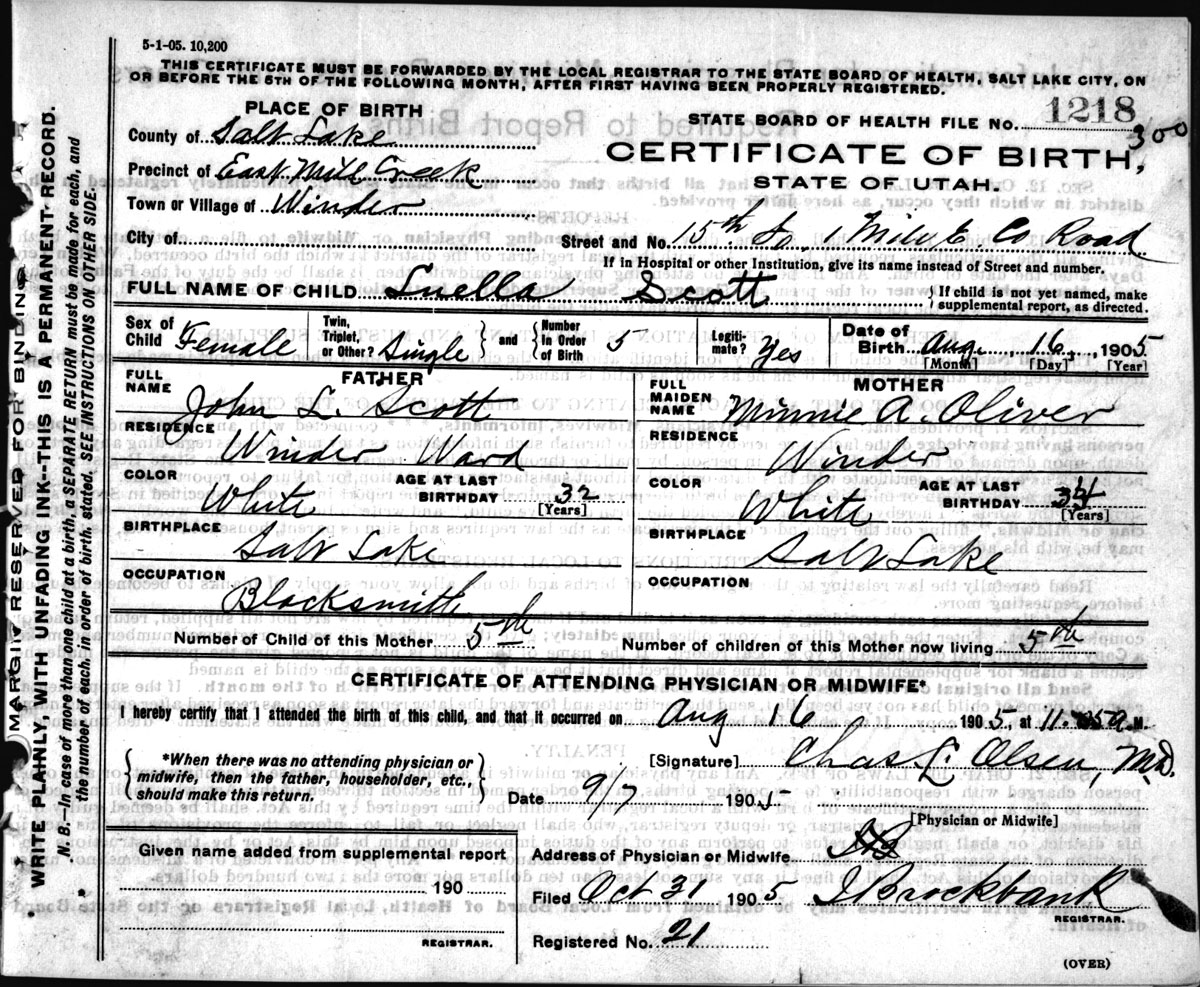 5-1-05. 10,200
THIS CERTIFICATE MUST BE FORWARDED BY THE LOCAL REGISTRAR TO THE STATE BOARD OF HEALTH, SALT LAKE CITY, ON
OR BEFORE THE 5TH OF THE FOLLOWING MONTH, AFTER FIRST HAVING BEEN PROPERLY REGISTERED.
PLACE OF BIRTH
STATE BOARD OF HEALTH FILE No. 1218
300
County of Salt Lake
CERTIFICATE OF BIRTH,
Precinct of East Mill Creek
STATE OF UTAH.
Town or Village of Winder
City of
Street and No. 15th So 1 Mile E Co Road
If in Hospital or other Institution, give its name instead of Street and number.
FULL NAME OF CHILD Luella Scott
{If child is not yet named, make supplemental report, as directed.
Sex of Child Female
Twin, Triplet, or Other? Single
and
Number in Order of Birth 5
Legitimate? Yes
Date of Birth Aug. 16, 1905
[Month] [Day] [Year]
FATHER
FULL NAME
John L. Scott
RESIDENCE
Winder Ward
COLOR
White
AGE AT LAST BIRTHDAY 32
[Years]
BIRTHPLACE
Salt Lake
OCCUPATION
Blacksmith
MOTHER
FULL MAIDEN NAME
Minnie A. Oliver
RESIDENCE
Winder
COLOR
White
AGE AT LAST BIRTHDAY 34
[Years]
BIRTHPLACE
Salt Lake
OCCUPATION
Number of Child of this Mother 5th
Number of children of this Mother now living 5th
CERTIFICATE OF ATTENDING PHYSICIAN OR MIDWIFE*
I hereby certify that I attended the birth of this child, and that it occurred on Aug 16 1905, at 11. a M.
*When there was no attending physician or
midwife, then the father, householder, etc.,
should make this return.
[Signature] Chas. L. Olsen, M.D.
Date 9/7 1905
[Physician or Midwife]
Given name added from supplemental report
190
REGISTRAR.
Address of Physician or Midwife
Filed Oct 31 1905 Brockbank
REGISTRAR.
Registered No. 21
(OVER)
MARGIN RESERVED FOR BINDING
WRITE PLAINLY WITH UNFADING INK--THIS IS A PERMANENT RECORD.
N. B.--In case of more than one child at a birth, a SEPARATE RETURN must be made for each, and
the number of each, in order of birth, stated. SEE INSTRUCTIONS ON OTHER SIDE.